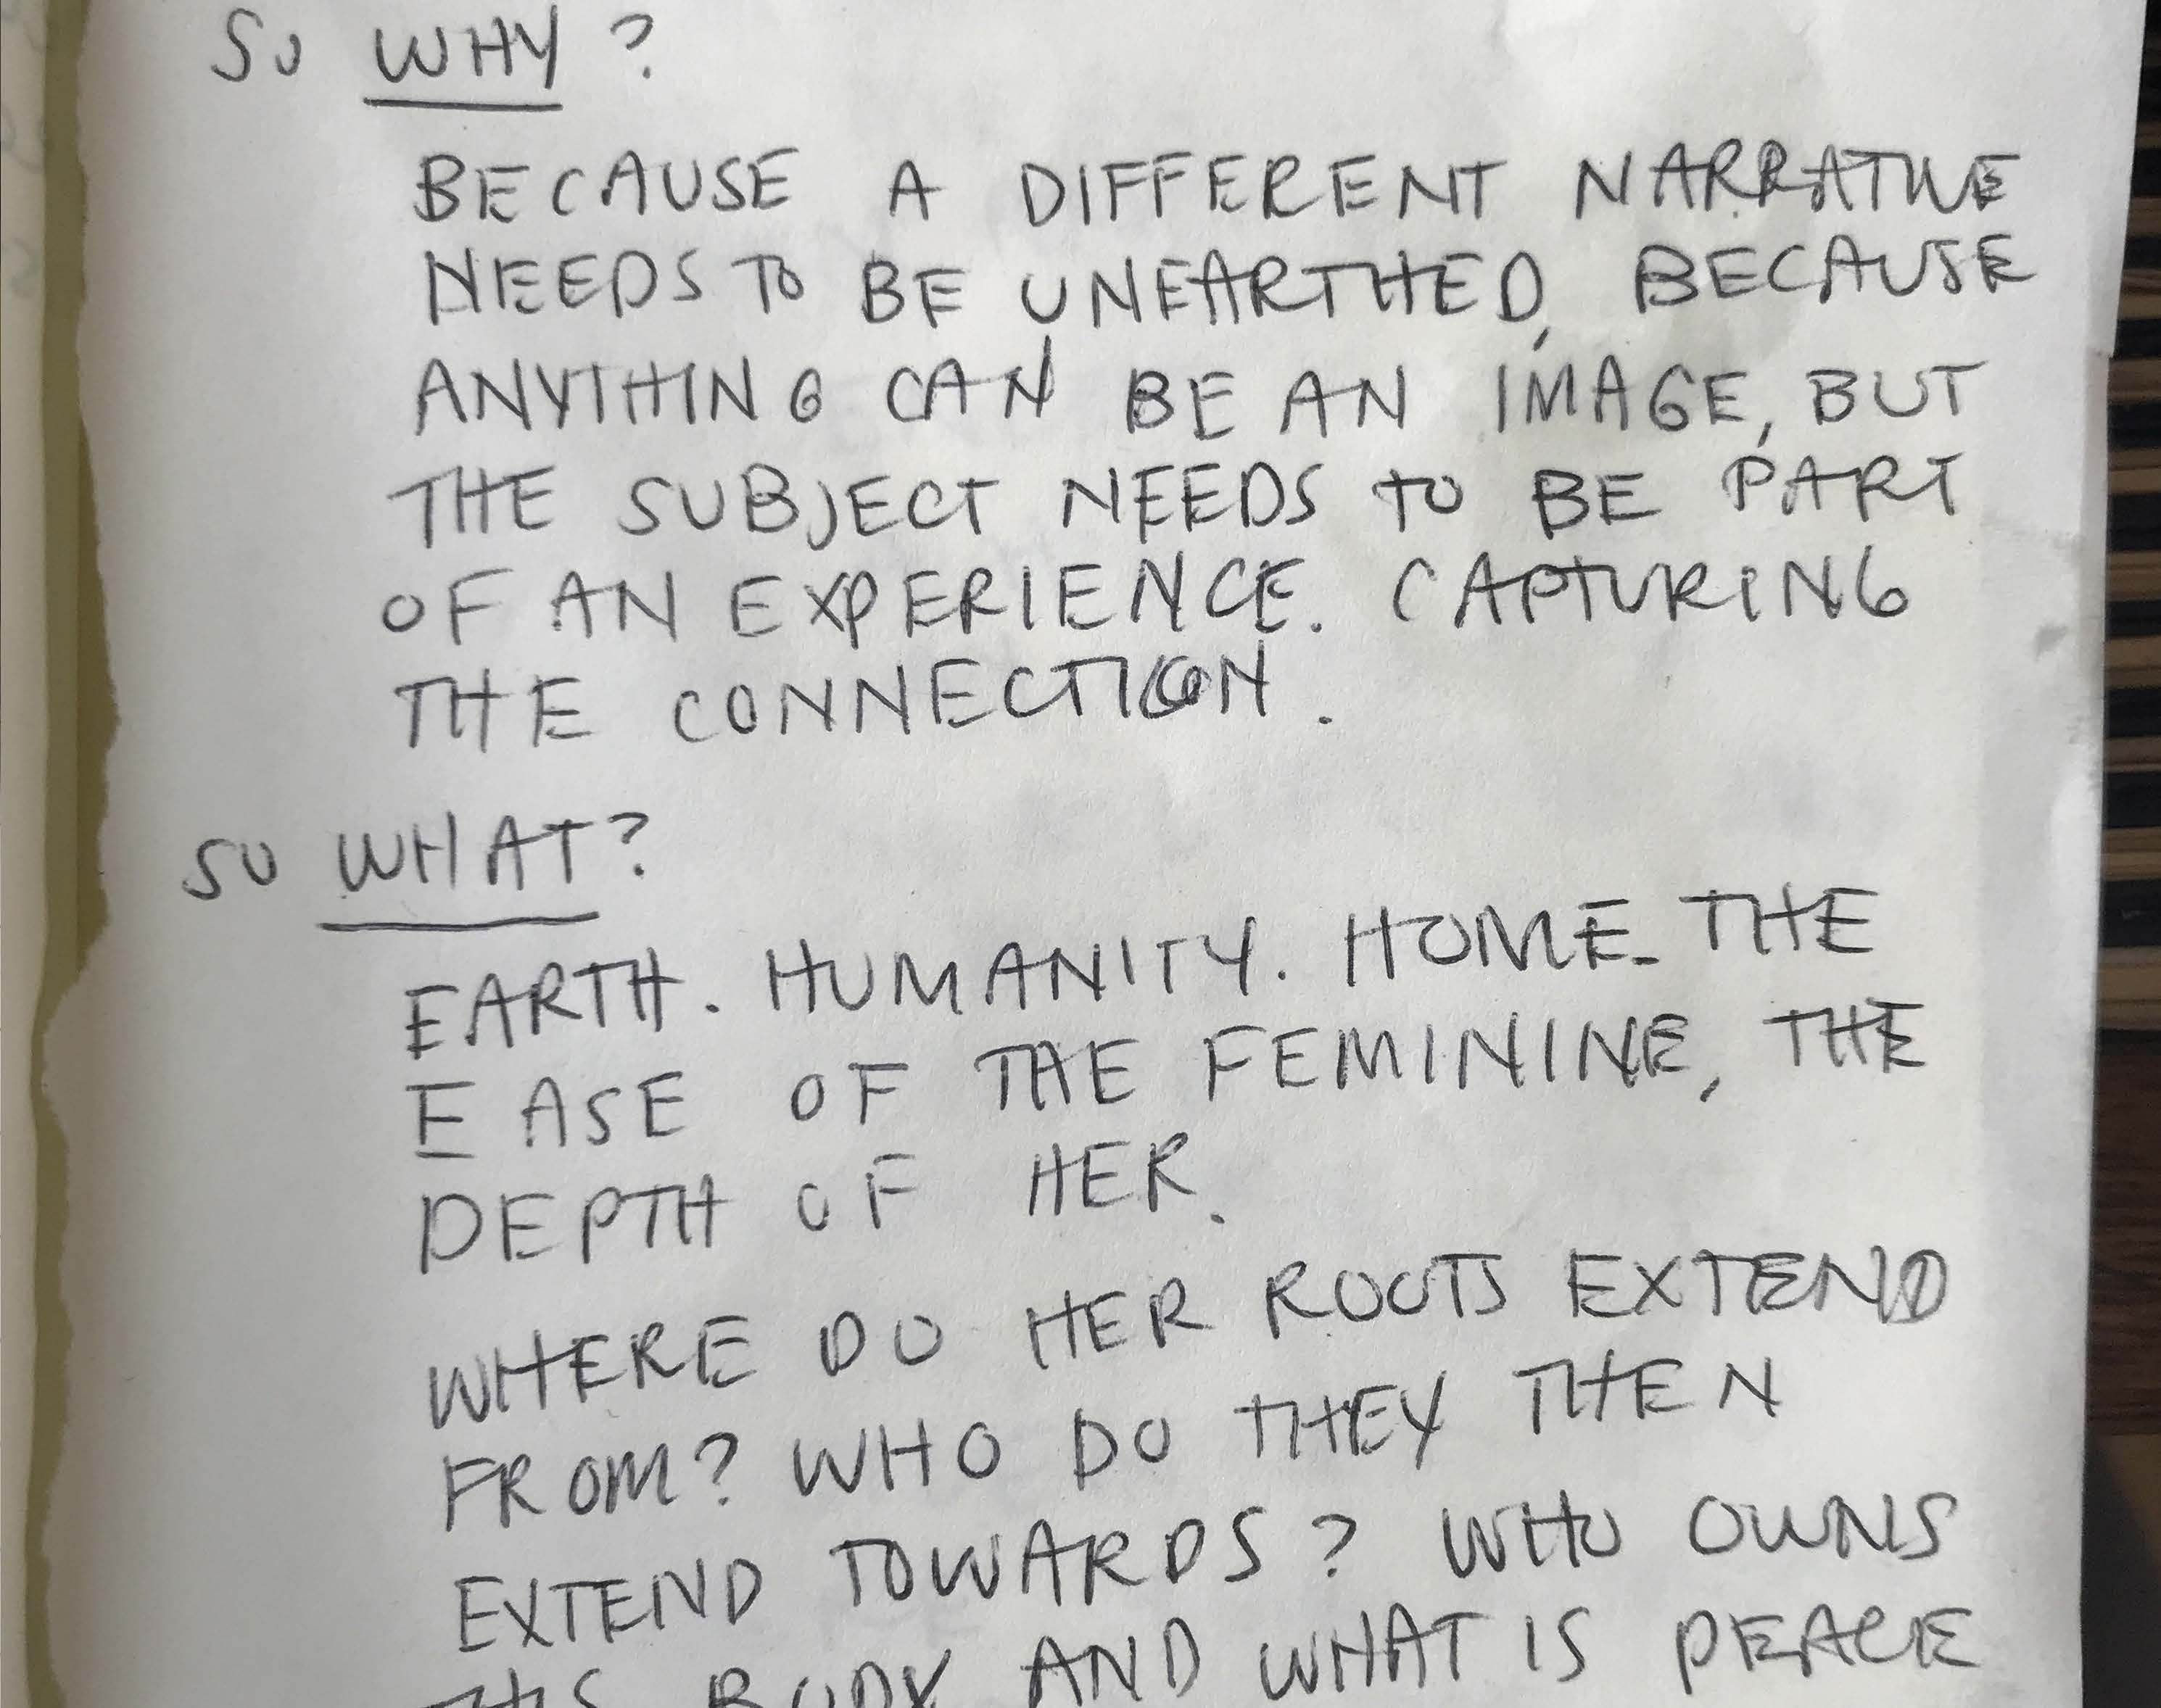 SO WHY?
BECAUSE A DIFFERENT NARRATIVE
NEEDS TO BE UNEARTHED, BECAUSE
ANYTHING CAN BE AN IMAGE, BUT
THE SUBJECT NEEDS TO BE PART
OF AN EXPERIENCE. CAPTURING
THE CONNECTION.
SO WHAT?
EARTH. HUMANITY. HOME. THE
EASE OF THE FEMININE, THE
DEPTH OF HER.
WHERE DO HER ROOTS EXTEND
FROM? WHO DO THEY THEN
EXTEND TOWARDS? WHO OWNS
THIS BODY AND WHAT IS PEACE